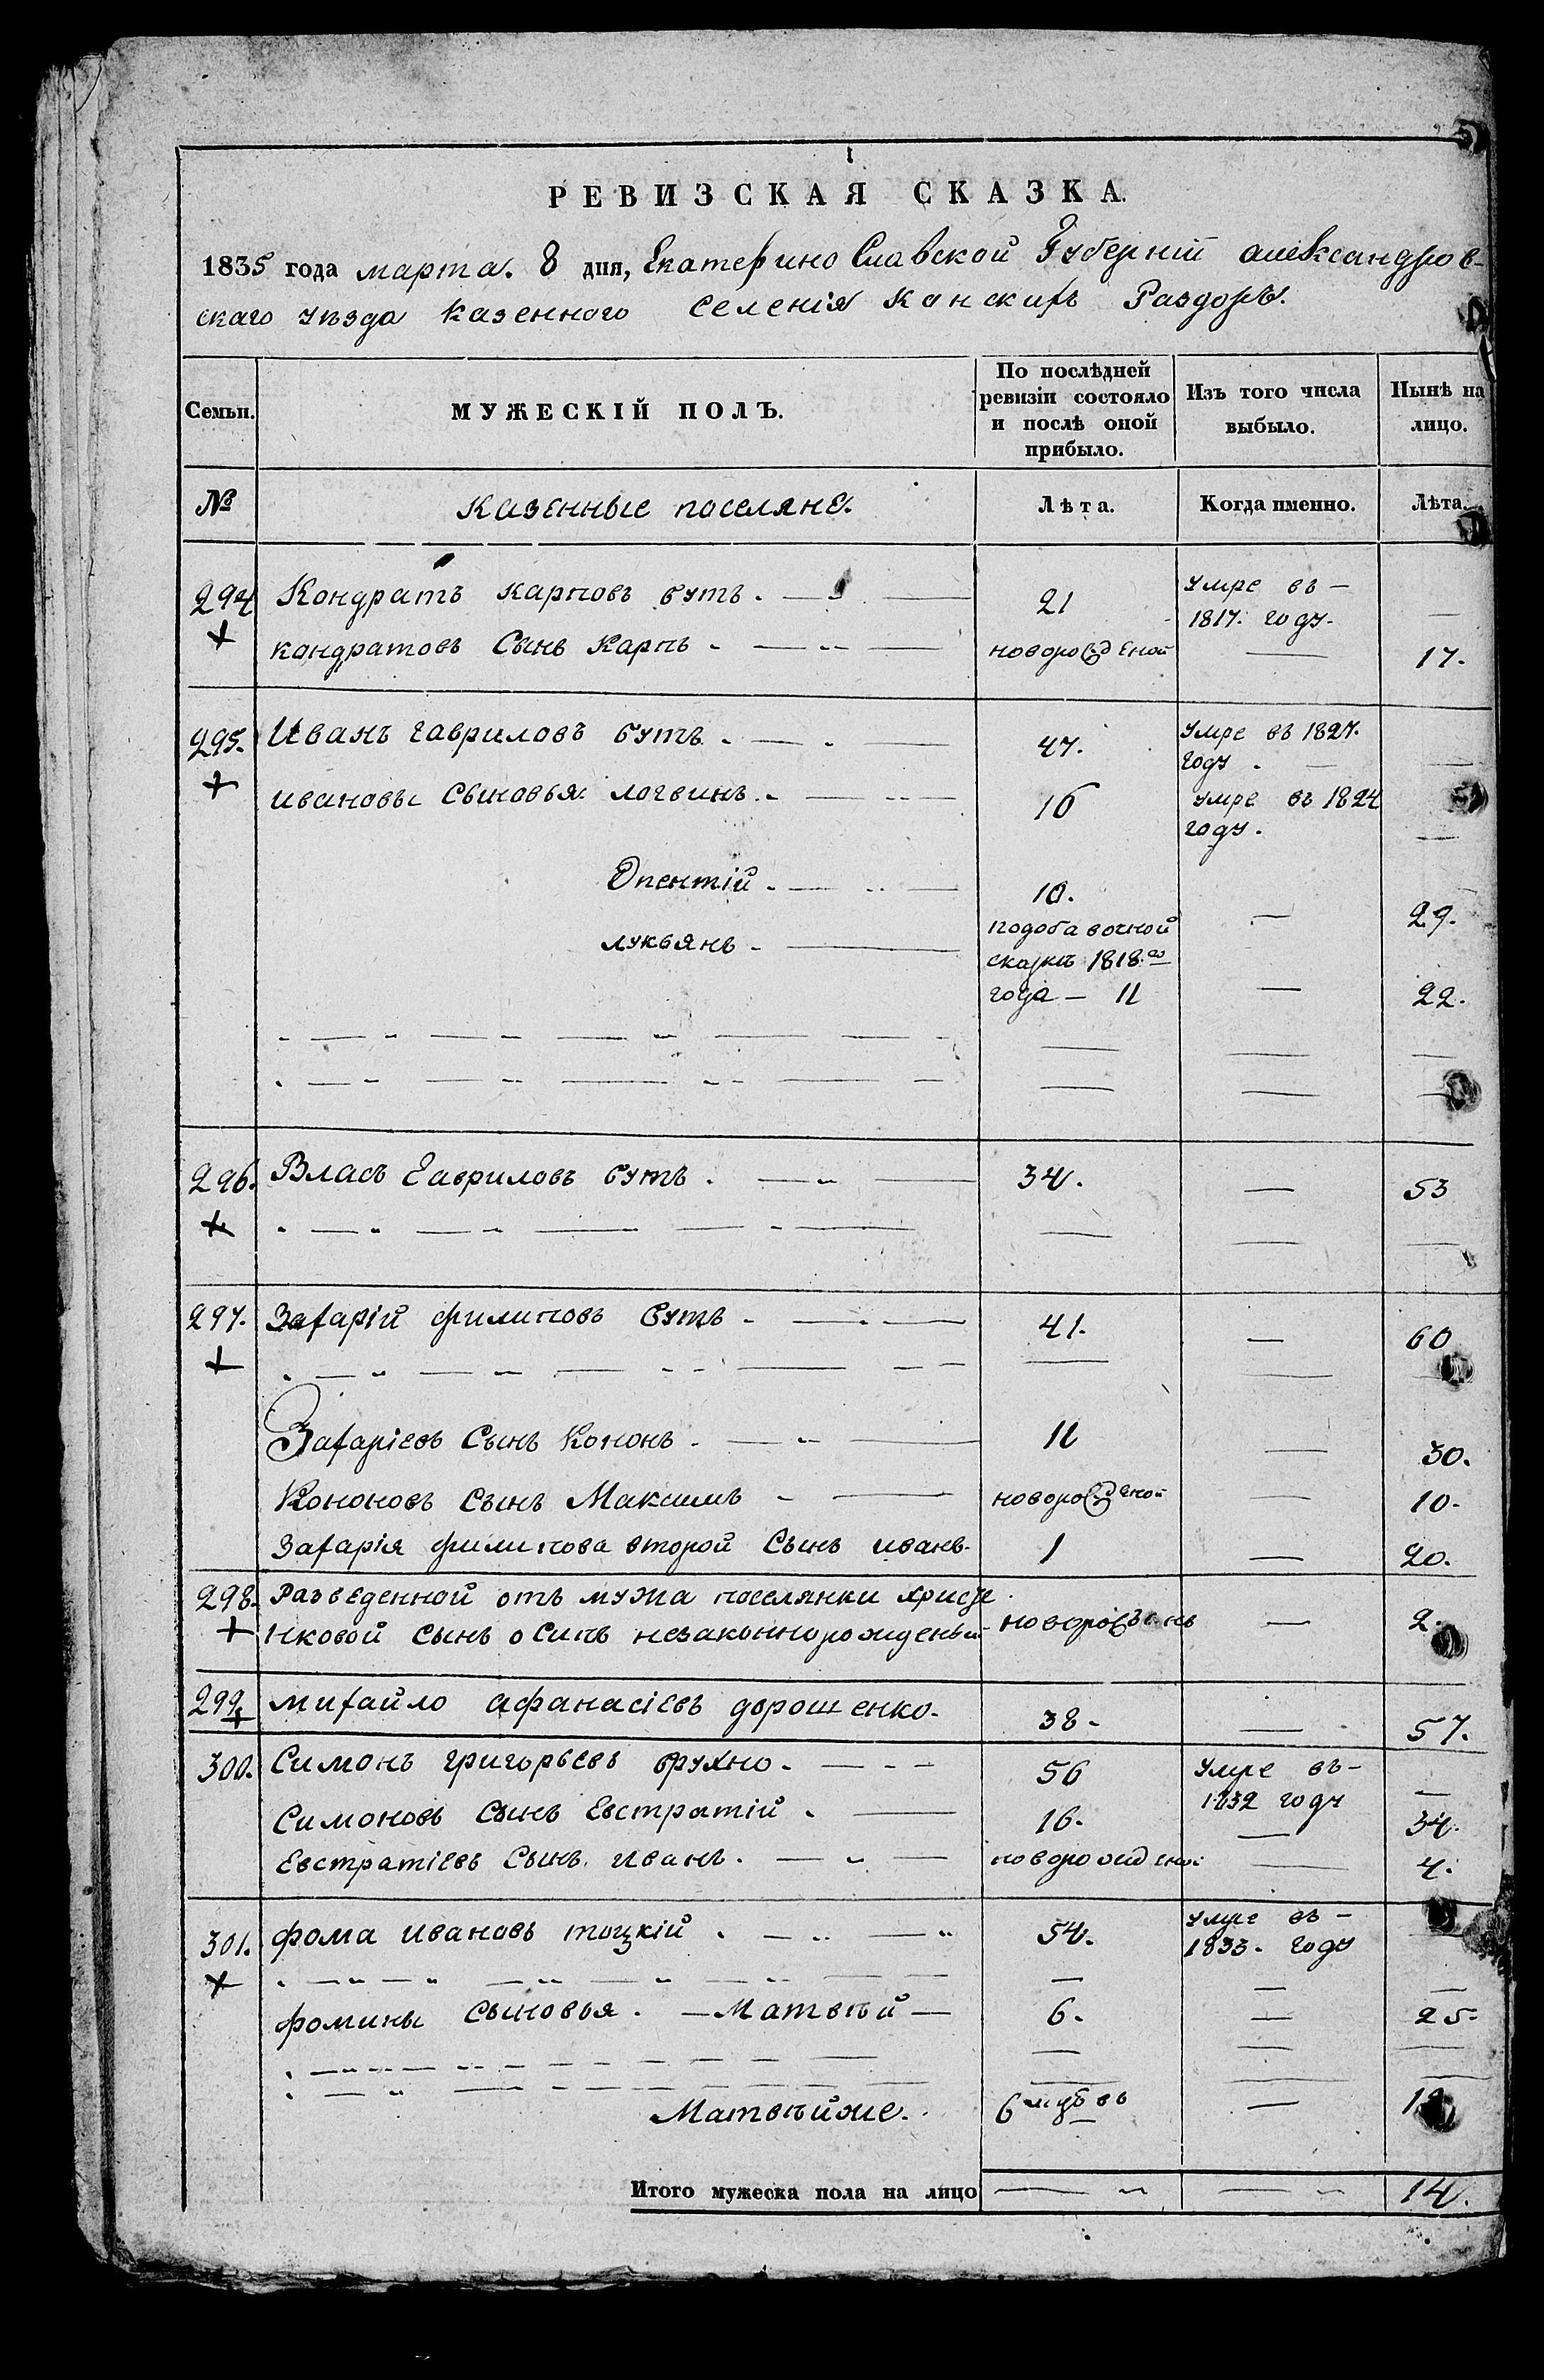 РЕВИЗСКАЯ СКАЗКА.
1835 года марта. 8 дня, Екатерино Славской Губерніи александров-
скаго уѣзда казенного селенія конских Раздоръ.
Семьи.
МУЖЕСКІЙ ПОЛЪ.
По послѣдней ревизіи состояло и послѣ оной прибыло.
Изъ того числа выбыло.
Нынѣ на лицо.
№ казенные поселяне. Лѣта. Когда именно. Лѣта.
294 Кондратъ карповъ бутъ. 21 умре въ —
1817. году.
кондратовъ Сынъ Карпъ новорожденой 17.
295. Иванъ гавриловъ бутъ. 47. умре въ 1827.
году.
ивановы сыновья логвинъ. 16 умре въ 1824
году.
Опентій. 10. 29.
лукьянъ подобавочной
сказкѣ 1818го
года — 11 22.
296. Власъ Гавриловъ бутъ. 34. 53
297. Захарій филиповъ бутъ 41. 60
Захаріевъ Сынъ Кононъ. 11 30.
Кононовъ Сынъ Максимъ новорожденой 10.
Захарія филипова второй Сынъ иванъ. 1 20.
298. Разведенной отъ мужа поселянки
нковой сынъ осипъ незаконнорожденый 2.
299. михайло афанасіевъ дорошенко. 38. 57.
300. Симонъ григорьевъ брухно. 56 умре въ —
1832 году
Симоновъ Сынъ Евстратій. 16. 34.
Евстратіевъ Сынъ. иванъ. новорожденой 4.
301. фома ивановъ тоцкій. 54. умре въ —
1833. году
фомины сыновья. — Матвѣй — 6. 25.
Матвѣйже. 6
Итого мужеска пола на лицо 14.